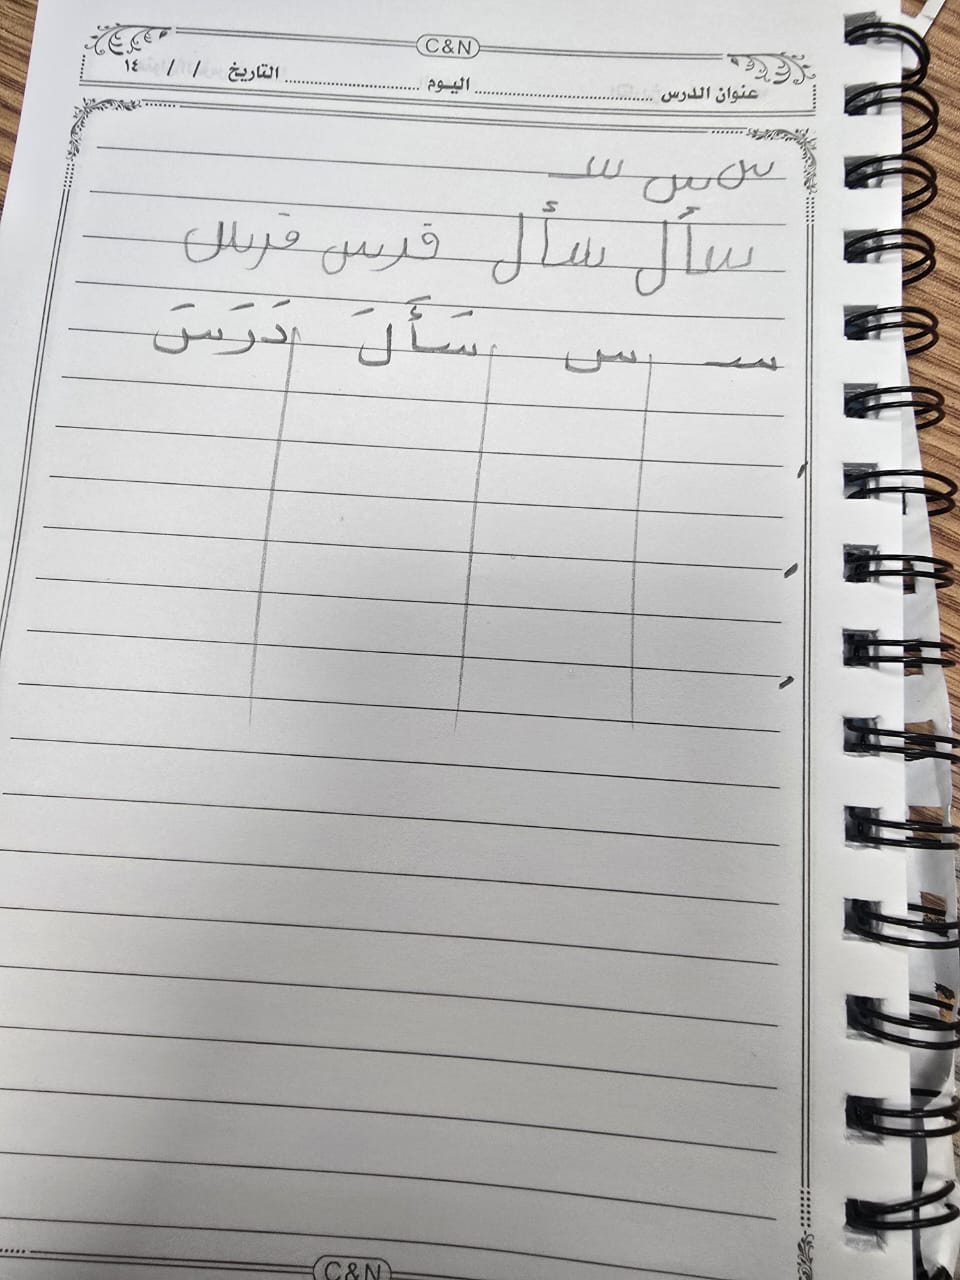 C&N
عنوان الدرس ........ اليوم ........ التاريخ / / ١٤
س س سـ
سأل سأل قرس قرس
سـ س سَأَلَ دَرَسَ
C&N